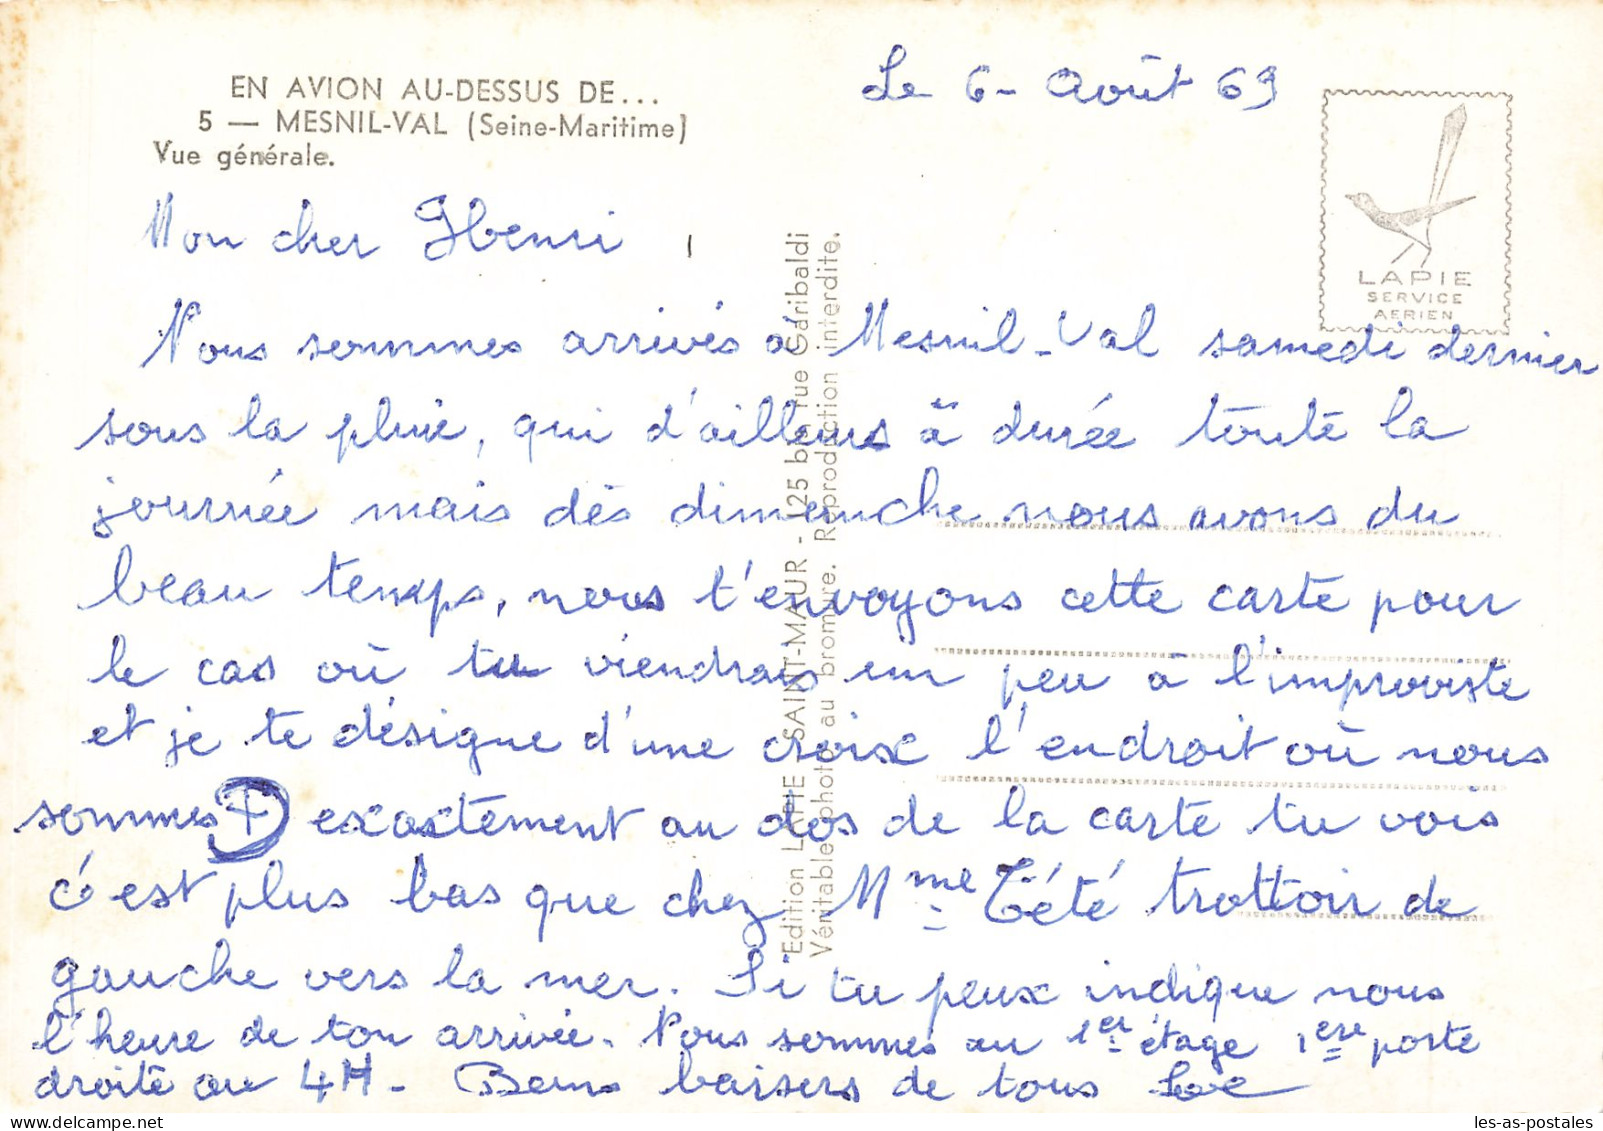 EN AVION AU-DESSUS DE...
5 — MESNIL-VAL (Seine-Maritime)
Vue générale.
Le 6 - Août 69
LAPIE
SERVICE
AERIEN
Mon cher Henri
Nous sommes arrivés à Mesnil-Val samedi dernier
sous la pluie, qui d'ailleurs à durée toute la
journée mais dès dimanche nous avons du
beau temps, nous t'envoyons cette carte pour
le cas où tu viendrais un peu à l'improviste
et je te désigne d'une croix l'endroit où nous
sommes + exactement au dos de la carte tu vois
c'est plus bas que chez Mme Tété trottoir de
gauche vers la mer. Si tu peux indique nous
l'heure de ton arrivée. Nous sommes au 1er étage 1ere porte
droite au 4H - Bons baisers de tous
Edition LAPIE - SAINT-MAUR - 125 bis, rue Garibaldi
Véritable photo au bromure. Reproduction interdite.
les-as-postales.com